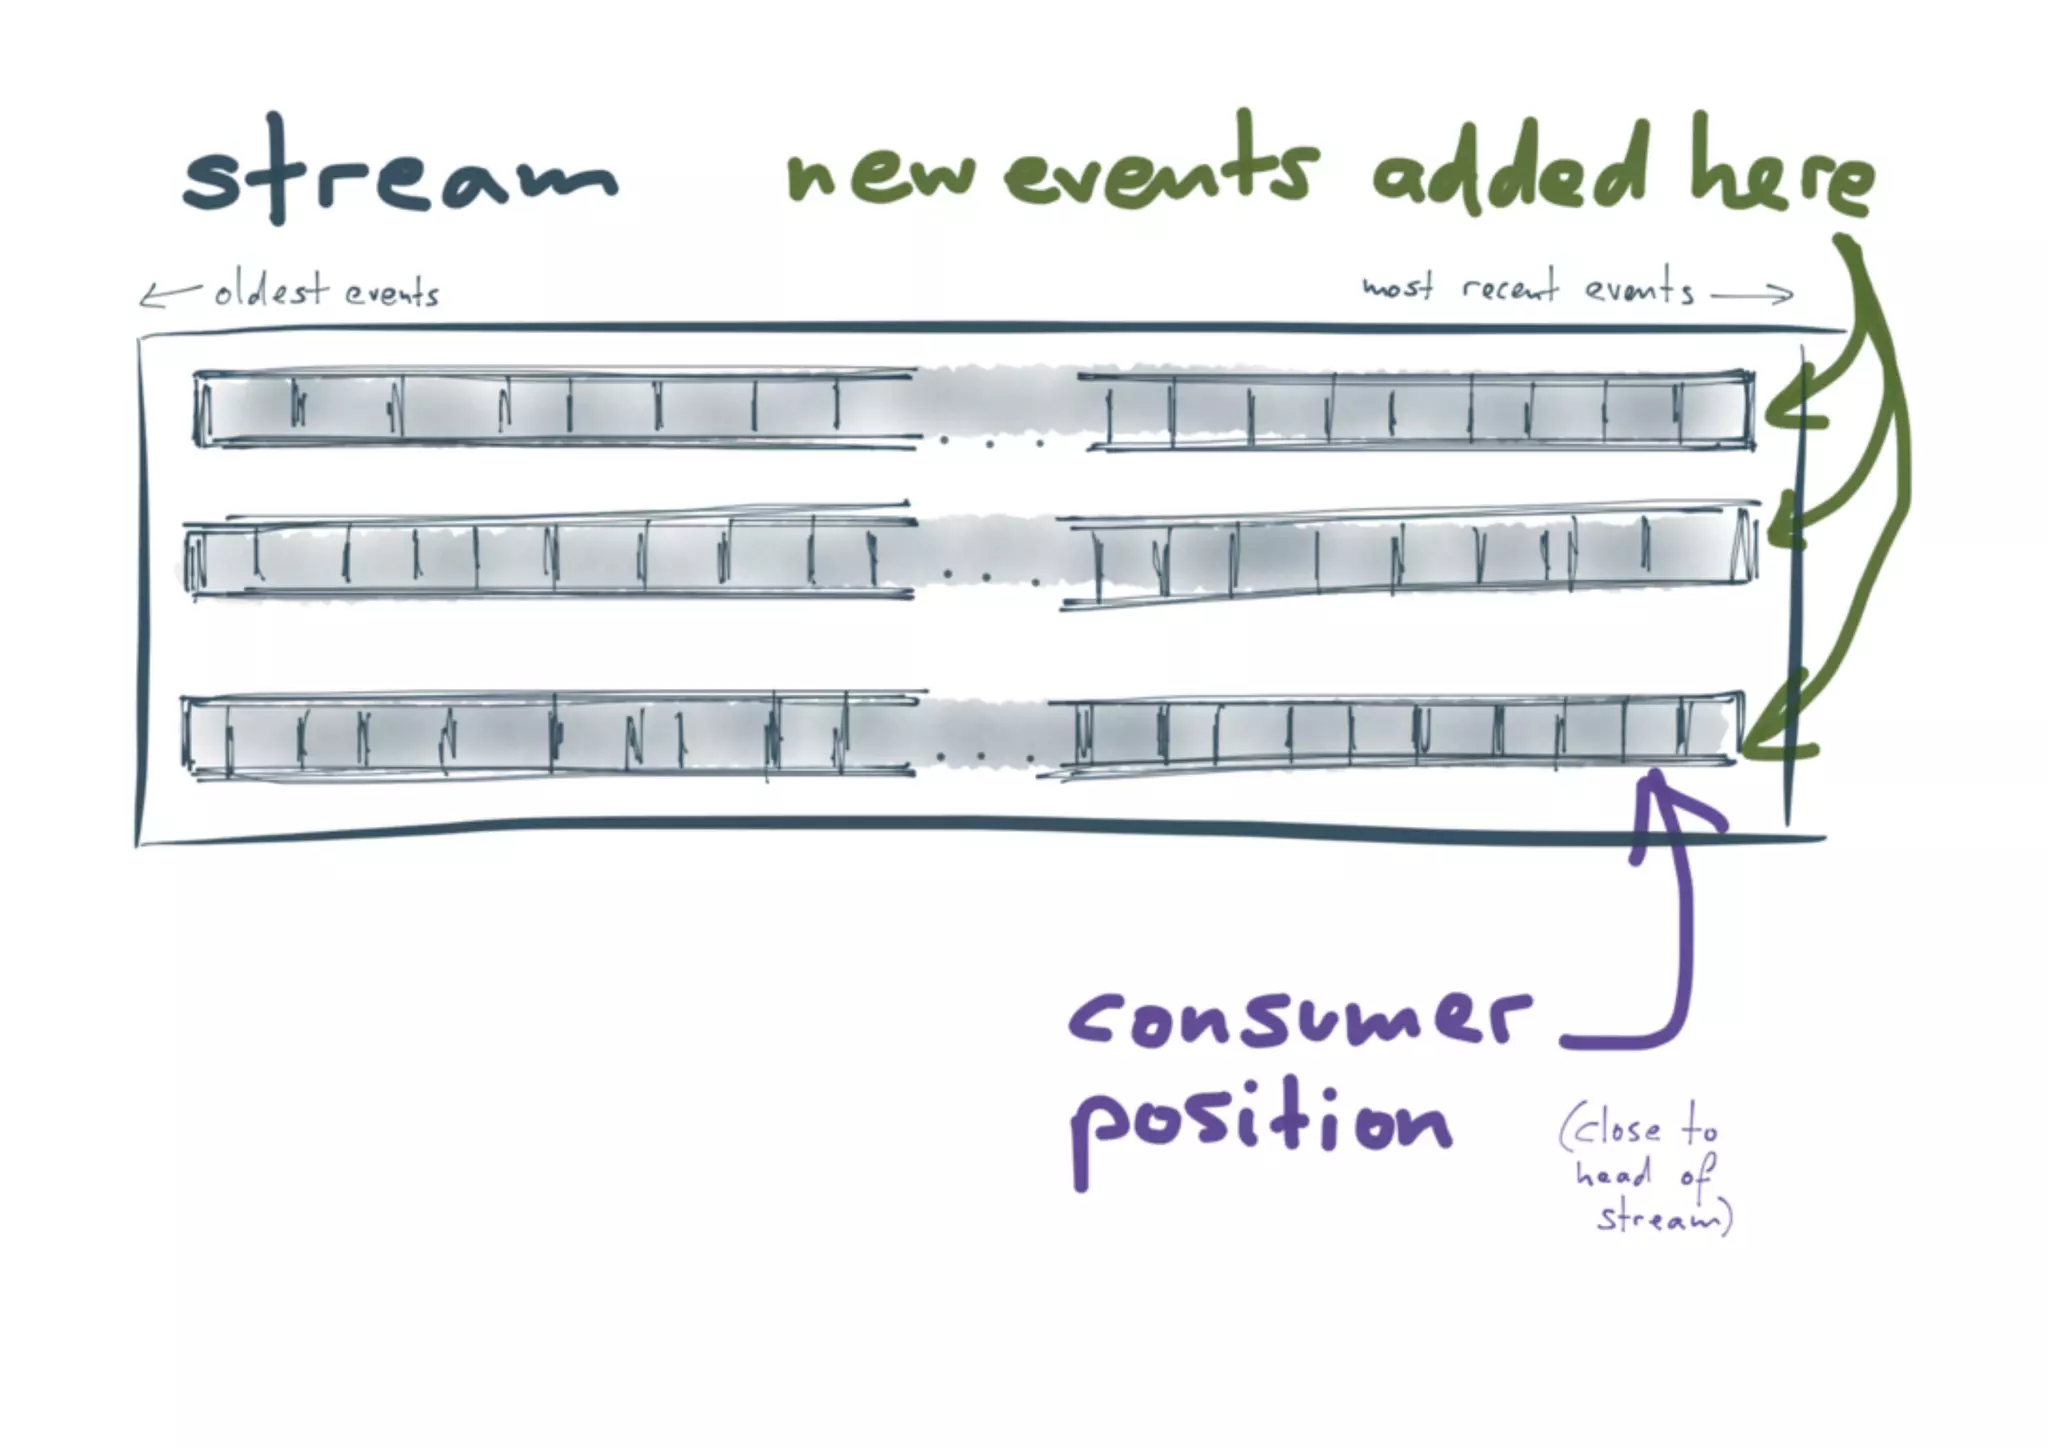 stream
new events added here
← oldest events
most recent events →
consumer
position
(close to
head of
stream)